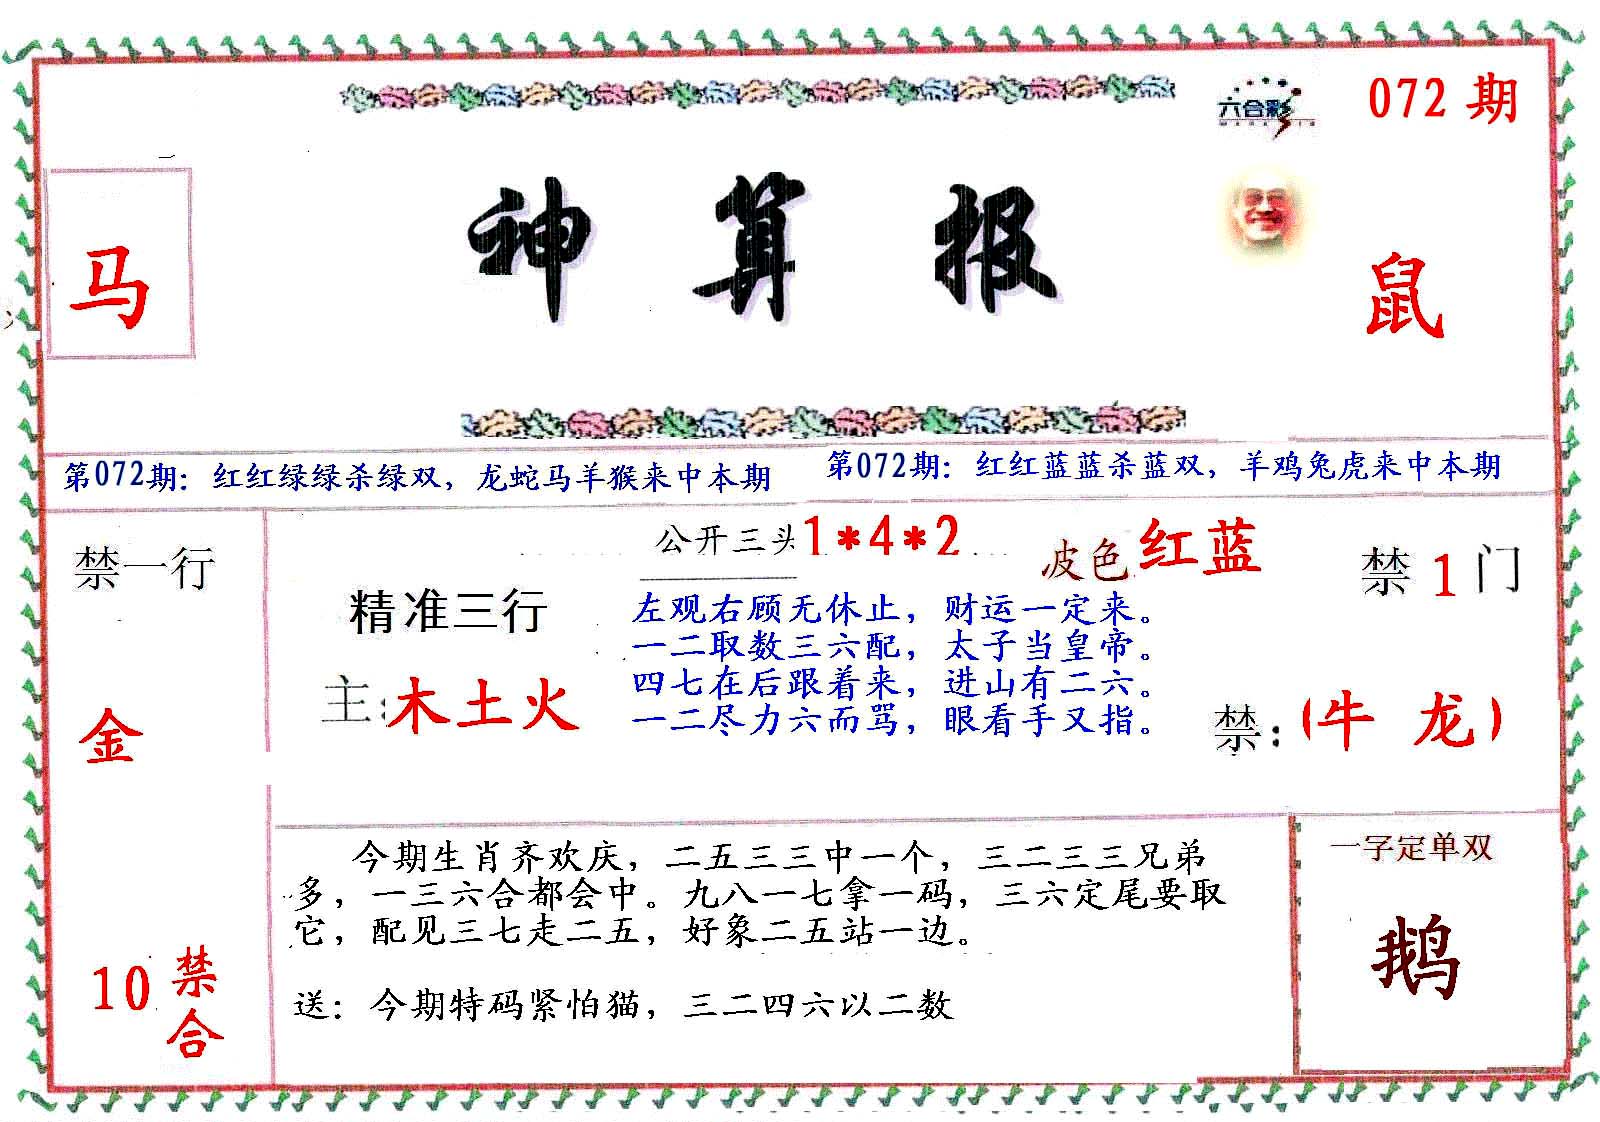 六合彩
072 期
神算报
马
鼠
第072期：红红绿绿杀绿双，龙蛇马羊猴来中本期
第072期：红红蓝蓝杀蓝双，羊鸡兔虎来中本期
禁一行
金
10 禁合
公开三头1*4*2
波色 红蓝
禁 1 门
精准三行
主:木土火
左观右顾无休止，财运一定来。
一二取数三六配，太子当皇帝。
四七在后跟着来，进山有二六。
一二尽力六而骂，眼看手又指。
禁:(牛 龙)
今期生肖齐欢庆，二五三三中一个，三二三三兄弟
多，一三六合都会中。九八一七拿一码，三六定尾要取
它，配见三七走二五，好象二五站一边。
送：今期特码紧怕猫，三二四六以二数
一字定单双
鹅